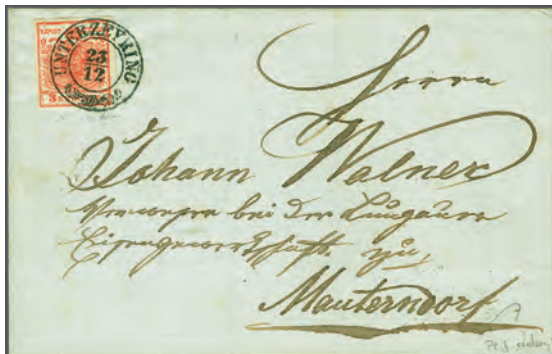 UNTERZEYRING
23
12
Herrn
Johann Walner
Verweser bei der Lungauer
Eisengewerkschaft zu
Mauterndorf